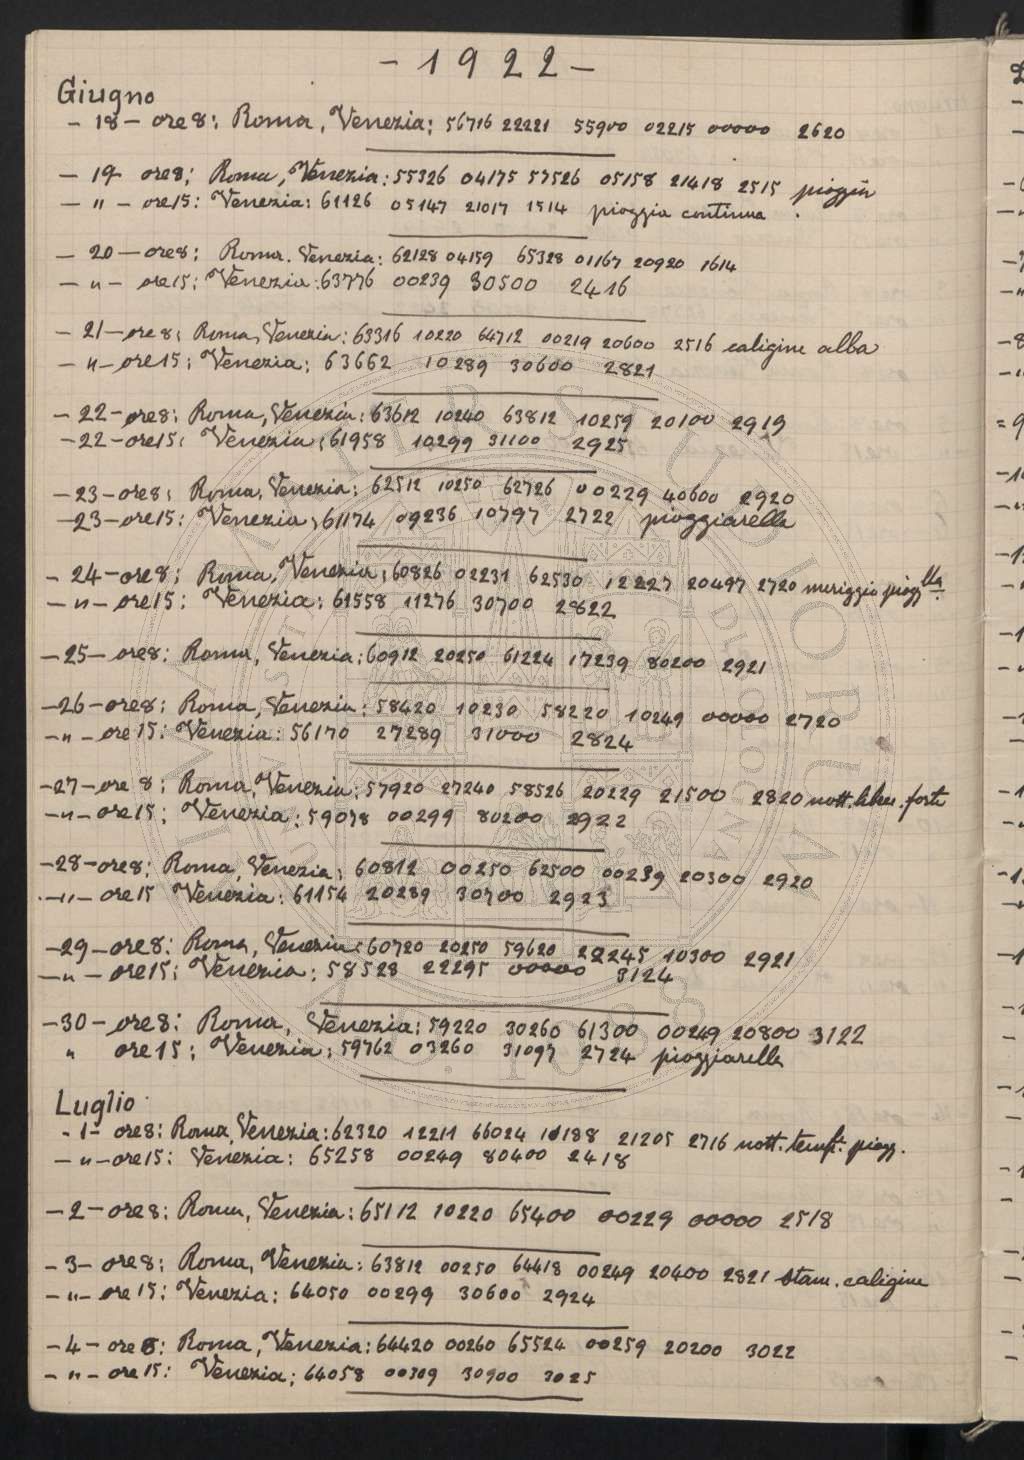 - 1922 -
Giugno
- 18 - ore 8: Roma, Venezia: 56716 22221 55900 02215 00000 2620
- 19 ore 8: Roma, Venezia: 55326 04175 57526 05158 21418 2515 pioggia
- " - ore 15: Venezia: 61126 05147 21017 1514 pioggia continua.
- 20 - ore 8: Roma. Venezia: 62128 04159 65328 01167 20920 1614
- " - ore 15: Venezia: 63776 00239 30500 2416
- 21 - ore 8: Roma, Venezia: 63316 10220 64712 00219 20600 2516 caligine alba
- " - ore 15: Venezia: 63662 10289 30600 2821
- 22 - ore 8: Roma, Venezia: 63612 10240 63812 10259 20100 2919
- 22 - ore 15: Venezia: 61958 10299 31100 2925
- 23 - ore 8: Roma, Venezia: 62512 10250 62726 00229 40600 2920
- 23 - ore 15: Venezia, 61174 09236 10797 2722 pioggiarella
- 24 - ore 8: Roma, Venezia: 60826 02231 62530 12227 20497 2720 meriggio piogglla.
- " - ore 15: Venezia: 61558 11276 30700 2822
- 25 - ore 8: Roma, Venezia: 60912 20250 61224 17239 80200 2921
- 26 - ore 8: Roma, Venezia: 58420 10230 58220 10249 00000 2720
- " - ore 15: Venezia: 56170 27289 31000 2824
- 27 - ore 8: Roma, Venezia: 57920 27240 58526 20229 21500 2820 nott. forte
- " - ore 15: Venezia: 59078 00299 80200 2922
- 28 - ore 8: Roma, Venezia: 60812 00250 62500 00239 20300 2920
- " - ore 15 Venezia: 61154 20289 30700 2923
- 29 - ore 8: Roma, Venezia: 60720 20250 59620 22245 10300 2921
- " - ore 15: Venezia: 58528 22295 00000 3124
- 30 - ore 8: Roma, Venezia: 59220 30260 61300 00249 20800 3122
" ore 15: Venezia: 59762 03260 31097 2724 pioggiarella
Luglio
- 1 - ore 8: Roma, Venezia: 62320 12211 66024 10188 21205 2716 nott. temp. piogg.
- " - ore 15: Venezia: 65258 00249 80400 2418
- 2 - ore 8: Roma, Venezia: 65112 10220 65400 00229 00000 2518
- 3 - ore 8: Roma, Venezia: 63812 00250 64418 00249 20400 2821 stam. caligine
- " - ore 15: Venezia: 64050 00299 30600 2924
- 4 - ore 8: Roma, Venezia: 64420 00260 65524 00259 20200 3022
- " - ore 15: Venezia: 64058 00309 30900 3025